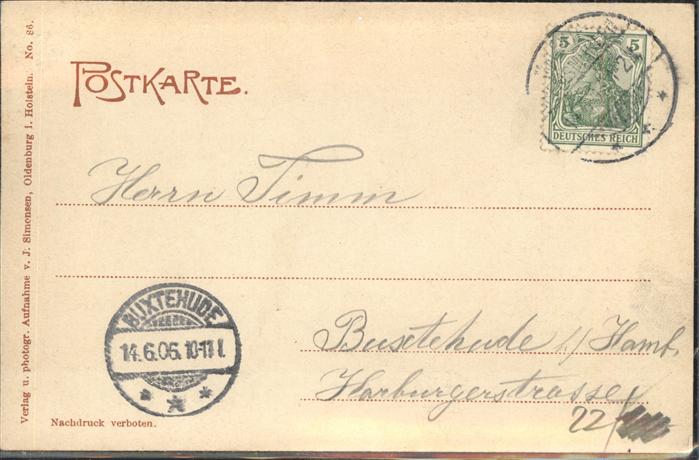 POSTKARTE.
5 5
DEUTSCHES REICH
Herrn Timm
BUXTEHUDE
14.6.05. 10-11 V.
Buxtehude b/ Hamb.
Harburgerstrasse
22
Nachdruck verboten.
Verlag u. photogr. Aufnahme v. J. Simonsen, Oldenburg i. Holstein. No. 86.